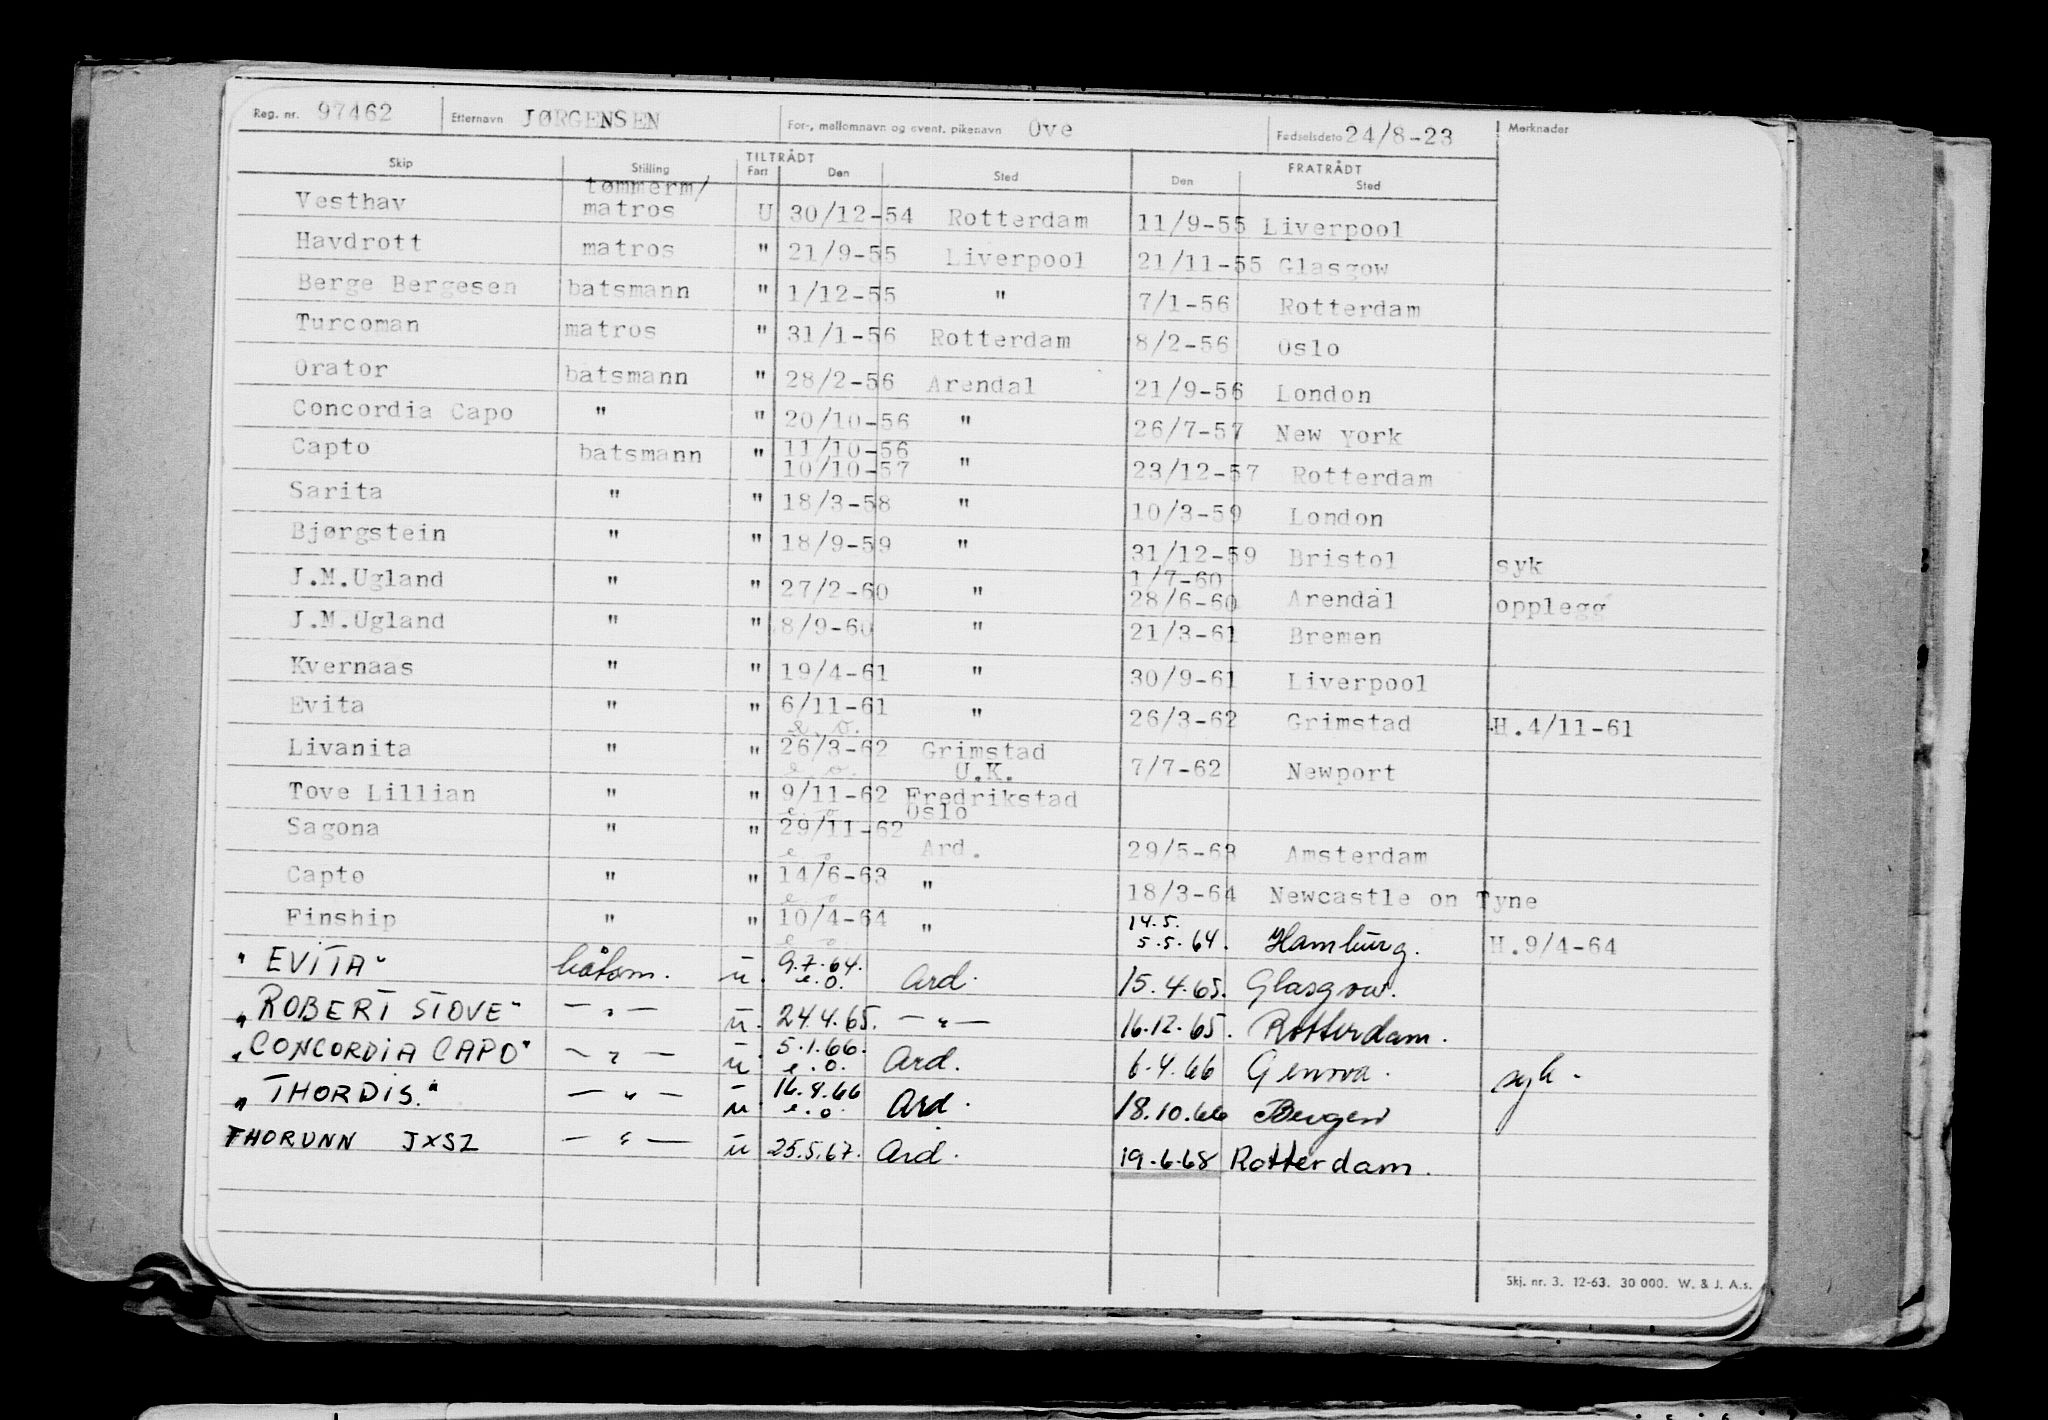 Reg. nr. 97462 Etternavn JØRGENSEN For-, mellomnavn og event. pikenavn Ove Fødselsdato 24/8-23 Merknader
TILTRÅDT FRATRÅDT
Skip Stilling Fart Den Sted Den Sted
tømmerm/
Vesthav matros U 30/12-54 Rotterdam 11/9-55 Liverpool
Havdrott matros " 21/9-55 Liverpool 21/11-55 Glasgow
Berge Bergesen batsmann " 1/12-55 " 7/1-56 Rotterdam
Turcoman matros " 31/1-56 Rotterdam 8/2-56 Oslo
Orator batsmann " 28/2-56 Arendal 21/9-56 London
Concordia Capo " " 20/10-56 " 26/7-57 New york
11/10-56
Capto batsmann " 10/10-57 " 23/12-57 Rotterdam
Sarita " " 18/3-58 " 10/3-59 London
Bjørgstein " " 18/9-59 " 31/12-59 Bristol syk
1/7-60
J.M.Ugland " " 27/2-60 " 28/6-60 Arendal opplegg
J.M.Ugland " " 8/9-60 " 21/3-61 Bremen
Kvernaas " " 19/4-61 " 30/9-61 Liverpool
Evita " " 6/11-61 " 26/3-62 Grimstad H.4/11-61
e.o.
Livanita " " 26/3-62 Grimstad 7/7-62 Newport
e.o. U.K.
Tove Lillian " " 9/11-62 Fredrikstad
e o Oslo
Sagona " " 29/11-62 Ard. 29/5-63 Amsterdam
e o
Capto " " 14/6-63 " 18/3-64 Newcastle on Tyne
e o
Finship " " 10/4-64 " 14.5. 5.5.64. Hamburg. H.9/4-64
e o
"EVITA" båtsm. u. 9.7.64. Ard. 15.4.65. Glasgow.
e.o.
"ROBERT STOVE" — " — u. 24.4.65. — " — 16.12.65. Rotterdam.
"CONCORDIA CAPO" — " — u. 5.1.66. Ard. 6.4.66 Genova. syk.
e.o.
"THORDIS." — " — u. 16.4.66 Ard. 18.10.66 Bergen
e.o.
THORUNN JXSZ — " — u 25.5.67. Ard. 19.6.68 Rotterdam.
Skj. nr. 3. 12-63. 30 000. W. & J. A.s.